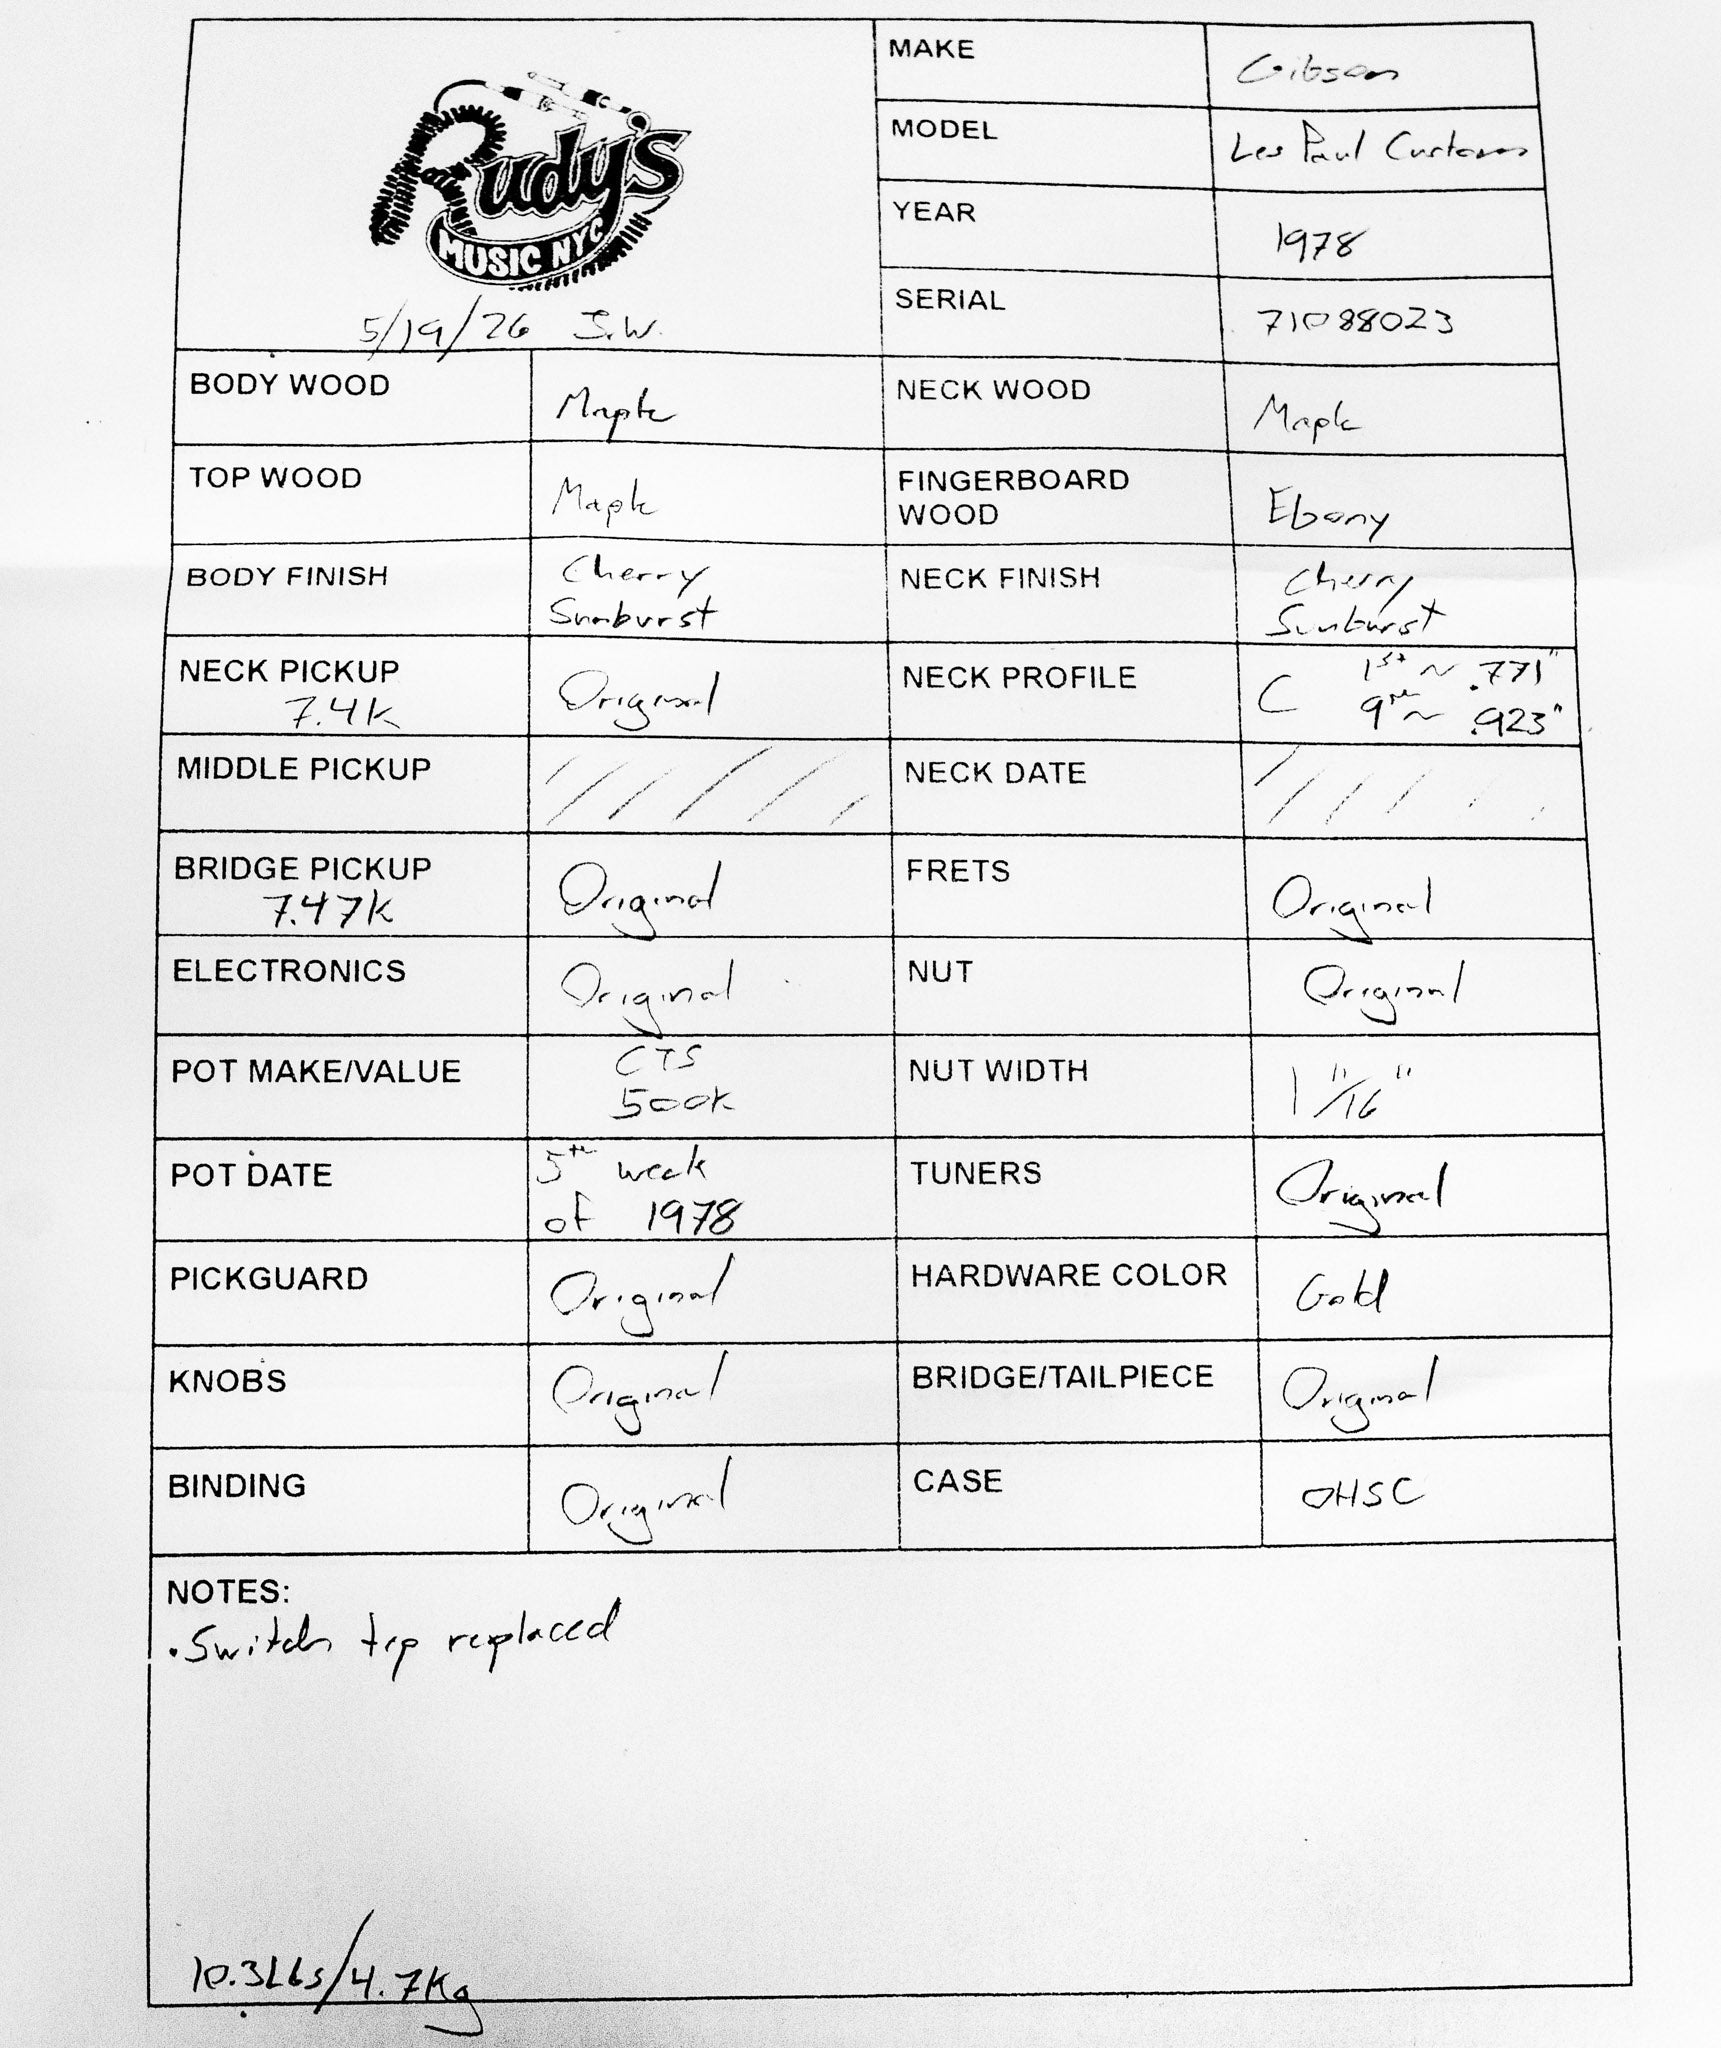 Rudy's
MUSIC NYC
5/19/26 J.W.
MAKE Gibson
MODEL Les Paul Custom
YEAR 1978
SERIAL 71088023
BODY WOOD Maple NECK WOOD Maple
TOP WOOD Maple FINGERBOARD WOOD Ebony
BODY FINISH Cherry Sunburst NECK FINISH Cherry Sunburst
NECK PICKUP 7.4K Original NECK PROFILE C 1st ~ .771" 9th ~ .923"
MIDDLE PICKUP NECK DATE
BRIDGE PICKUP 7.47K Original FRETS Original
ELECTRONICS Original NUT Original
POT MAKE/VALUE CTS 500K NUT WIDTH 1 11/16"
POT DATE 5th week of 1978 TUNERS Original
PICKGUARD Original HARDWARE COLOR Gold
KNOBS Original BRIDGE/TAILPIECE Original
BINDING Original CASE OHSC
NOTES:
• Switch tip replaced
10.3Lbs/4.7Kg